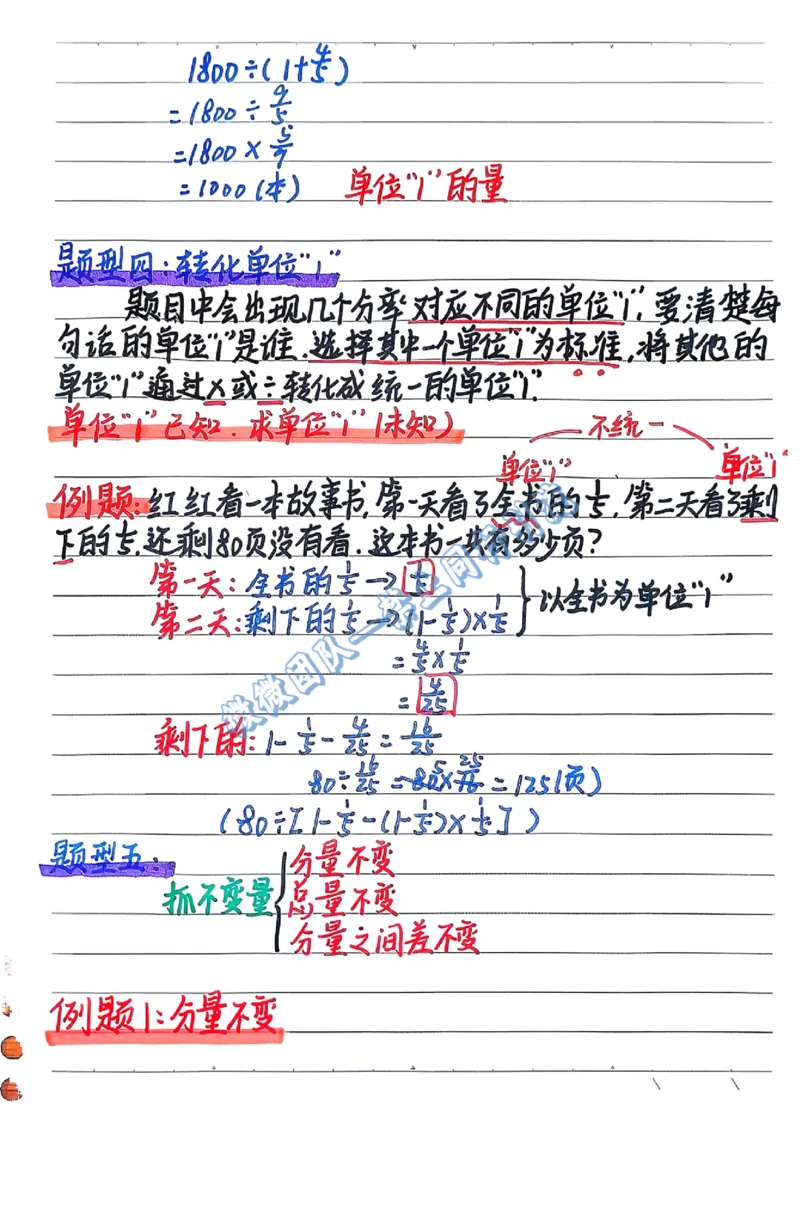 1800÷(1+4/5)
=1800÷9/5
=1800×5/9
=1000(本) 单位“1”的量
题型四:转化单位“1”
题目中会出现几个分率对应不同的单位“1”,要清楚每
句话的单位“1”是谁.选择其中一个单位“1”为标准,将其他的
单位“1”通过×或÷转化成统一的单位“1”.
单位“1”已知.求单位“1”(未知)
不统一
单位“1” 单位“1”
例题:红红看一本故事书,第一天看了全书的1/5,第二天看了剩
下的1/5,还剩80页没有看.这本书一共有多少页?
第一天:全书的1/5→1/5
第二天:剩下的1/5→(1-1/5)×1/5
以全书为单位“1”
=4/5×1/5
=4/25
剩下的:1-1/5-4/25=16/25
80÷16/25=80×25/16=125(页)
(80÷[1-1/5-(1-1/5)×1/5])
题型五:
抓不变量
分量不变
总量不变
分量之间差不变
例题1:分量不变